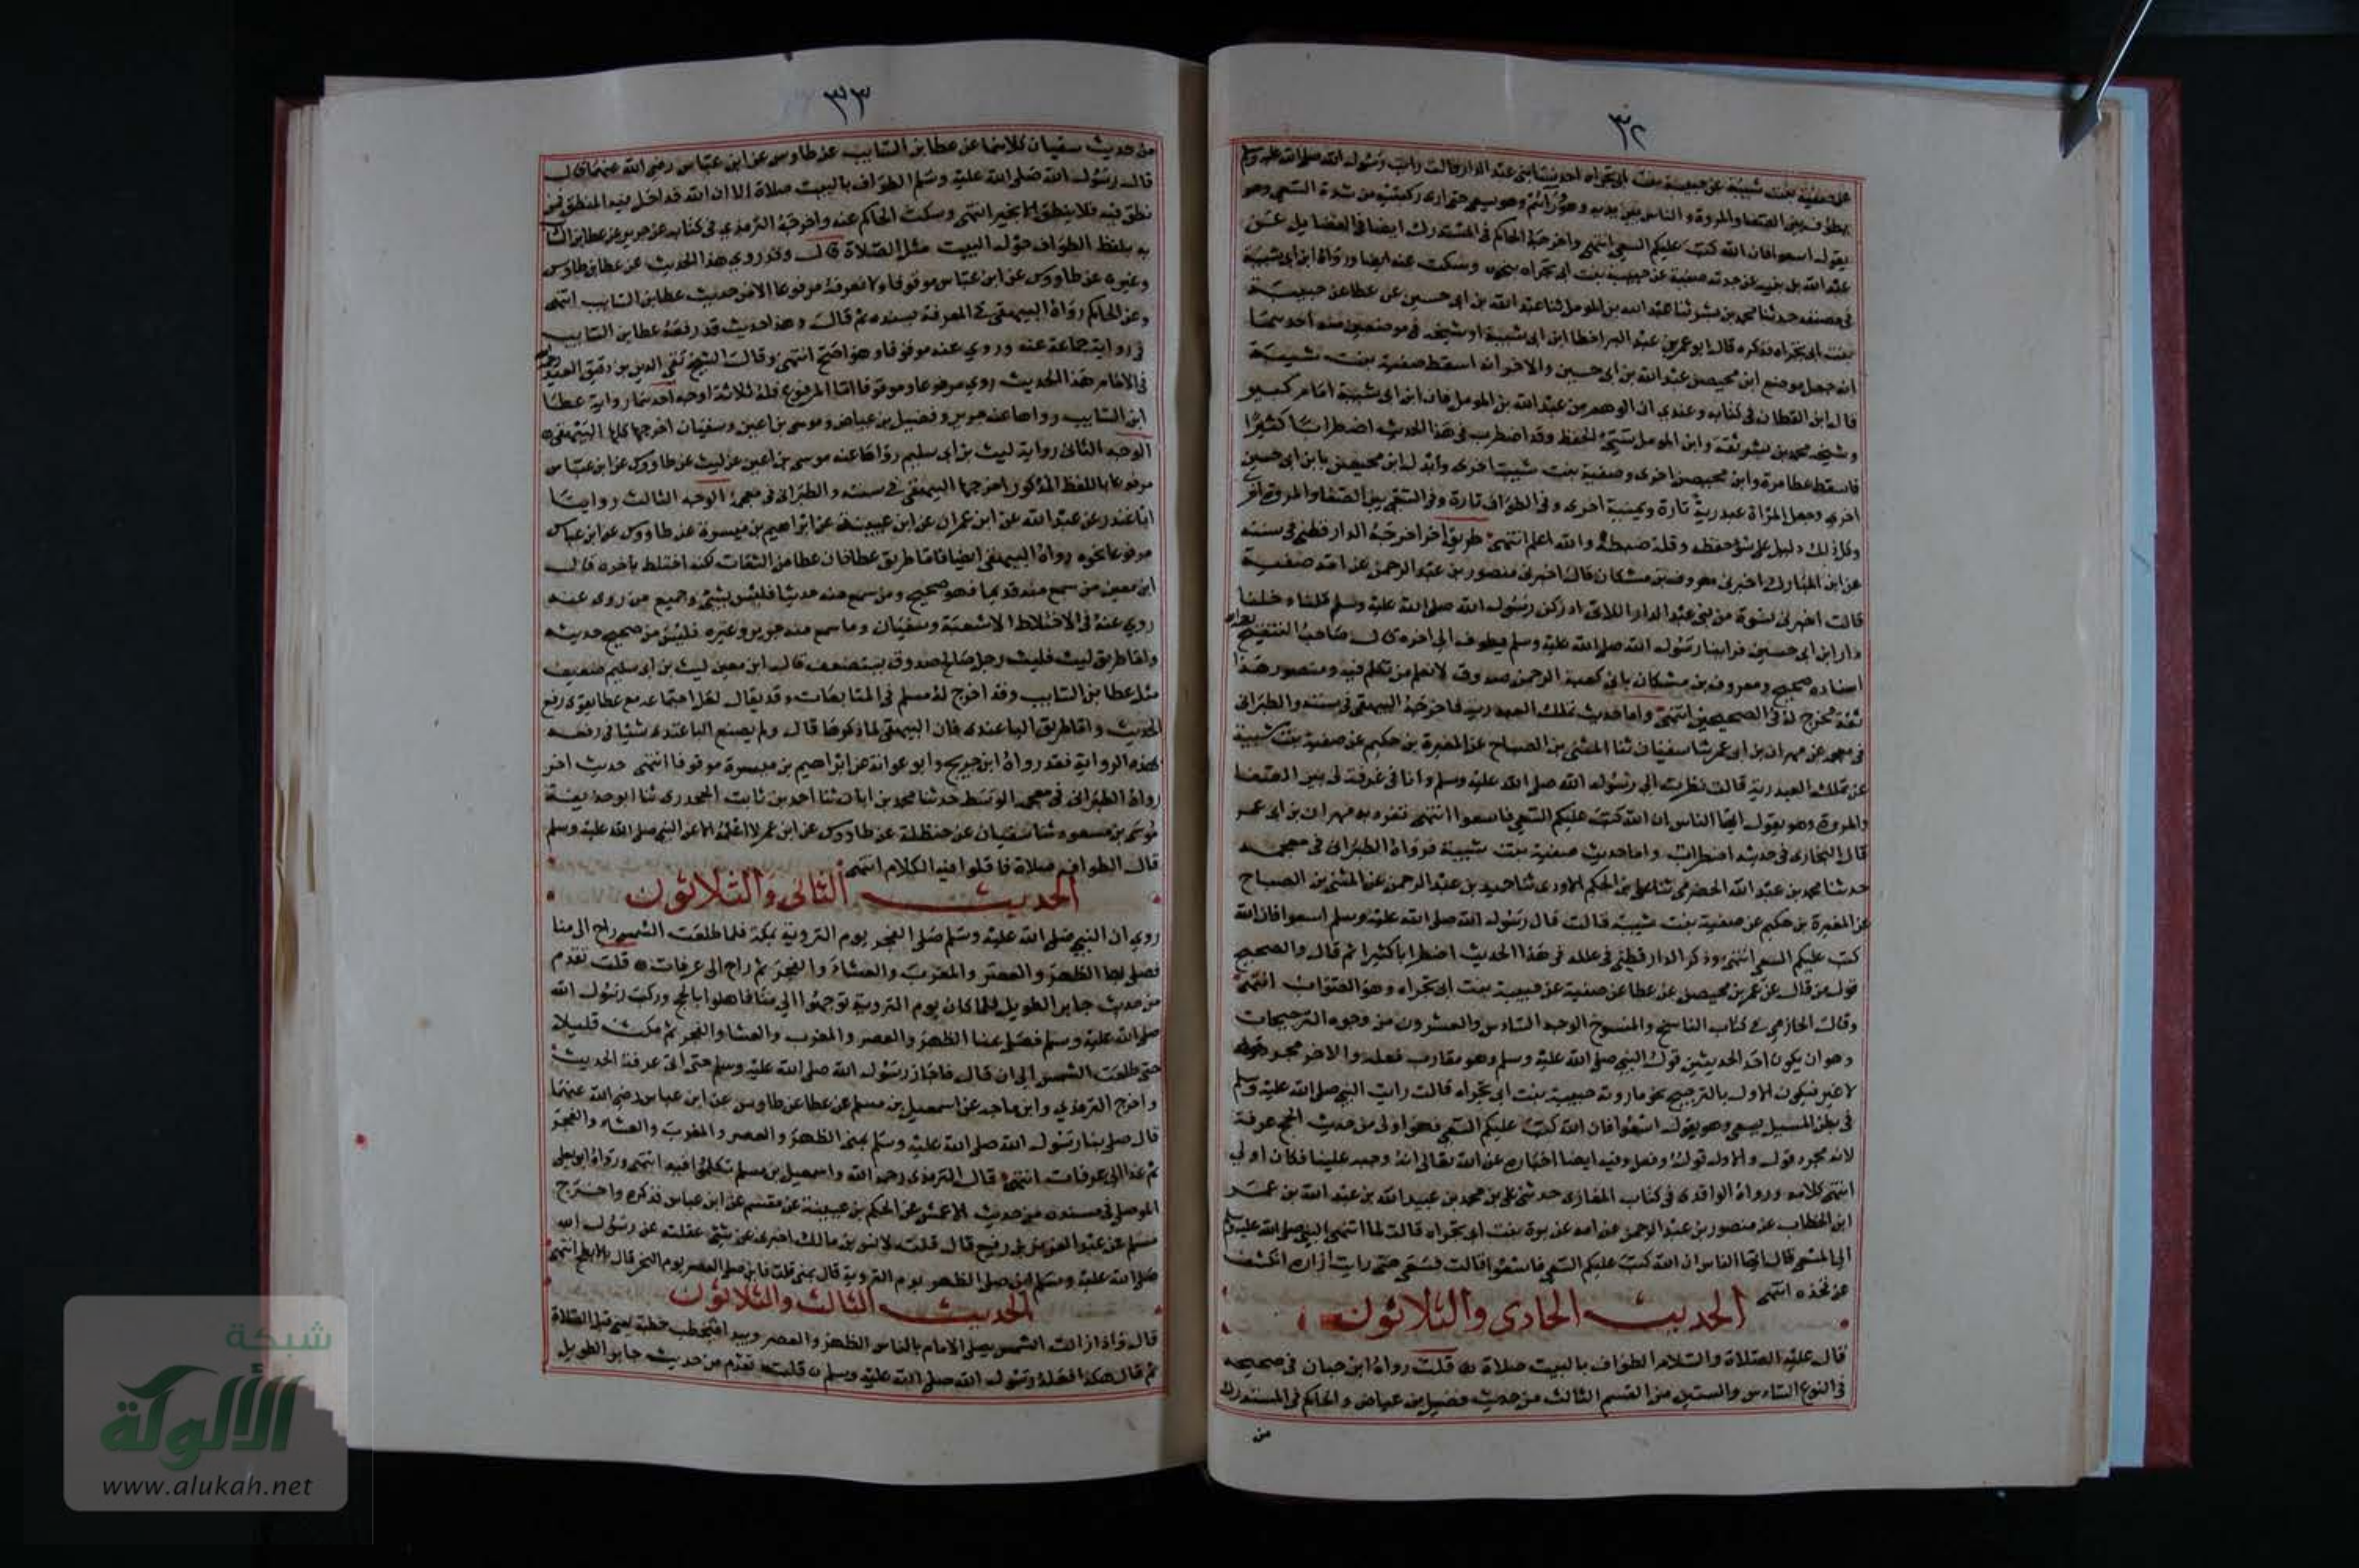 ٣٢
عن صفية بنت شيبة عن حبيبة بنت ابي تجراه احدى نسا بني عبد الدار قالت رايت رسول الله صلى الله عليه وسلم
يطوف بين الصفا والمروة والناس بين يديه وهو ورآئهم وهو يسعى حتى ارى ركبتيه من شدة السعي وهو
يقول اسعوا فان الله كتب عليكم السعي انتهى واخرجه الحاكم في المستدرك ايضا في الفضايل عن
عبد الله بن نبيه عن جدته صفية عن حبيبة بنت ابي تجراه بنحوه وسكت عنه ايضا ورواه ابن ابي شيبة
في مصنفه حدثنا محمد بن بشر ثنا عبد الله بن المومل ثنا عبد الله بن ابي حسين عن عطا عن حبيبة
بنت ابي تجراه فذكره قال ابو عمر بن عبد البر اخطا ابن ابي شيبة او شيخه في موضعين منه احدهما
انه جعل موضع ابن محيصن عبد الله بن ابي حسين والاخر انه اسقط صفية بنت شيبة
قال ابن القطان في كتابه وعندي ان الوهم من عبد الله بن المومل فان ابن ابي شيبة امام كبير
وشيخه محمد بن بشر ثقة وابن المومل سيئ الحفظ وقد اضطرب في هذا الحديث اضطرابا كثيرا
فاسقط عطا مرة وابن محيصن اخرى وصفية بنت شيبة اخرى وابدل ابن محيصن بابن ابي حسين
اخرى وجعل المراة عبدرية تارة ويمنية اخرى وفي الطواف تارة وفي السعي بين الصفا والمروة اخرى
وكل ذلك دليل على سؤ حفظه وقلة ضبطه والله اعلم انتهى طريق اخر اخرجه الدارقطني في سننه
عن ابن المبارك اخبرني معروف بن مشكان قال اخبرني منصور بن عبد الرحمن عن امه صفية
قالت اخبرني نسوة من بني عبد الدار اللاتي ادركن رسول الله صلى الله عليه وسلم قلن دخلنا
دار ابن ابي حسين فراينا رسول الله صلى الله عليه وسلم يطوف الى اخره قال صاحب التنقيح
اسناده صحيح ومعروف بن مشكان باني كعبة الرحمن صدوق لا نعلم من تكلم فيه ومنصور هذا
ثقة مخرج له في الصحيحين انتهى واما حديث تملك العبدرية فاخرجه البيهقي في سننه والطبراني
في معجمه عن مهران بن ابي عمر ثنا سفيان ثنا المثنى بن الصباح عن المغيرة بن حكيم عن صفية بنت شيبة
عن تملك العبدرية قالت نظرت الى رسول الله صلى الله عليه وسلم وانا في غرفة لي بين الصفا
والمروة وهو يقول ايها الناس ان الله كتب عليكم السعي فاسعوا انتهى تفرد به مهران بن ابي عمر
قال البخاري في حديثه اضطراب واما حديث صفية بنت شيبة فرواه الطبراني في معجمه
حدثنا محمد بن عبد الله الحضرمي ثنا علي بن الحكم الاودي ثنا حميد بن عبد الرحمن عن المثنى بن الصباح
عن المغيرة بن حكيم عن صفية بنت شيبة قالت قال رسول الله صلى الله عليه وسلم اسعوا فان الله
كتب عليكم السعي انتهى وذكر الدارقطني في علله في هذا الحديث اضطرابا كثيرا ثم قال والصحيح
قول من قال عن عمر بن محيصن عن عطا عن صفية عن حبيبة بنت ابي تجراه وهو الصواب انتهى
وقال الحازمي في كتاب الناسخ والمنسوخ الوجه السادس والعشرون من وجوه الترجيحات
وهو ان يكون احد الحديثين قول النبي صلى الله عليه وسلم وهو مقارب فعله والاخر مجرد قوله
لا غير فيكون الاول بالترجيح نحو ما روته حبيبة بنت ابي تجراه قالت رايت النبي صلى الله عليه وسلم
في بطن المسيل يسعى وهو يقول اسعوا فان الله كتب عليكم السعي فهو اولى من حديث الحج عرفة
لانه مجرد قول والاول قول وفعل وفيه ايضا اخباره عن الله تعالى انه وجبه علينا فكان اولى
انتهى كلامه ورواه الواقدي في كتاب المغازي حدثني علي بن محمد بن عبيد الله بن عبد الله بن عمر
ابن الخطاب عن منصور بن عبد الرحمن عن امه عن برة بنت ابي تجراه قالت لما انتهى النبي صلى الله عليه وسلم
الى المسعى قال ايها الناس ان الله كتب عليكم السعي فاسعوا قالت فسعى حتى رايت ازاره انكشف
عن فخذه انتهى
الحديث الحادي والثلاثون
قال عليه الصلاة والسلام الطواف بالبيت صلاة قلت رواه ابن حبان في صحيحه
في النوع السادس والستين من القسم الثالث من حديث فضيل بن عياض والحاكم في المستدرك
من
٣٣
من حديث سفيان كلاهما عن عطا بن السايب عن طاوس عن ابن عباس رضي الله عنهما قال
قال رسول الله صلى الله عليه وسلم الطواف بالبيت صلاة الا ان الله قد احل فيه المنطق فمن
نطق فيه فلا ينطق الا بخير انتهى وسكت الحاكم عنه واخرجه الترمذي في كتابه عن جرير عن عطا بن السا
به بلفظ الطواف حول البيت مثل الصلاة قال وقد روي هذا الحديث عن عطا بن طاوس
وغيره عن طاووس عن ابن عباس موقوفا ولا نعرفه مرفوعا الا من حديث عطا بن السايب انتهى
وعن الحاكم رواه البيهقي في المعرفة بسنده ثم قال وهذا حديث قد رفعه عطا بن السايب
في رواية جماعة عنه وروي عنه موقوفا وهو اصح انتهى وقال الشيخ تقي الدين بن دقيق العيد
في الامام هذا الحديث روي مرفوعا وموقوفا اما المرفوع فله ثلاثة اوجه احدها رواية عطا
ابن السايب رواها عنه جرير وفضيل بن عياض وموسى بن اعين وسفيان اخرجها كلها البيهقي
الوجه الثاني رواية ليث بن ابي سليم رواها عنه موسى بن اعين عن ليث عن طاووس عن ابن عباس
مرفوعا باللفظ المذكور اخرجها البيهقي في سننه والطبراني في معجمه الوجه الثالث رواية
الباغندي عن عبد الله عن ابن عمران عن ابن عيينة عن ابراهيم بن ميسرة عن طاووس عن ابن عباس
مرفوعا نحوه رواه البيهقي ايضا فاما طريق عطا فان عطا من الثقات لكنه اختلط باخره قال
ابن معين من سمع منه قديما فهو صحيح ومن سمع منه حديثا فليس بشئ وجميع من روى عنه
روي عنه في الاختلاط الا شعبة وسفيان وما سمع منه جرير وغيره فليس من صحيح حديثه
واما طريق ليث فليث رجل صالح صدوق يستضعف قال ابن معين ليث بن ابي سليم ضعيف
مثل عطا بن السايب وقد اخرج له مسلم في المتابعات وقد يقال لعل اجتماعه مع عطا يقوي رفع
الحديث واما طريق الباغندي فان البيهقي لما ذكرها قال ولم يصنع الباغندي شيئا في رفعه
لهذه الرواية فقد رواه ابن جريج وابو عوانة عن ابراهيم بن ميسرة موقوفا انتهى حديث اخر
رواه الطبراني في معجمه الوسط حدثنا محمد بن ابان ثنا احمد بن ثابت الجحدري ثنا ابو حذيفة
موسى بن مسعود ثنا سفيان عن حنظلة عن طاووس عن ابن عمر لا اعلمه الا عن النبي صلى الله عليه وسلم
قال الطواف صلاة فاقلوا فيه الكلام انتهى
الحديث الثاني والثلاثون
روي ان النبي صلى الله عليه وسلم صلى الفجر يوم التروية بمكة فلما طلعت الشمس راح الى منا
فصلى بها الظهر والعصر والمغرب والعشاء والفجر ثم راح الى عرفات قلت تقدم
من حديث جابر الطويل فلما كان يوم التروية توجهوا الى منا فاهلوا بالحج وركب رسول الله
صلى الله عليه وسلم فصلى بمنا الظهر والعصر والمغرب والعشا والفجر ثم مكث قليلا
حتى طلعت الشمس الى ان قال فاجاز رسول الله صلى الله عليه وسلم حتى اتى عرفة الحديث
واخرج الترمذي وابن ماجه عن اسمعيل بن مسلم عن عطا عن طاوس عن ابن عباس رضي الله عنهما
قال صلى بنا رسول الله صلى الله عليه وسلم بمنى الظهر والعصر والمغرب والعشاء والفجر
ثم غدا الى عرفات انتهى قال الترمذي رحمه الله واسمعيل بن مسلم تكلموا فيه انتهى ورواه ابو يعلى
الموصلي في مسنده من حديث الاعمش عن الحكم بن عيينة عن مقسم عن ابن عباس فذكره واخرج
مسلم عن عبد العزيز بن رفيع قال قلت لانس بن مالك اخبرني عن شئ عقلته عن رسول الله
صلى الله عليه وسلم اين صلى الظهر يوم التروية قال بمنى قلت فاين صلى العصر يوم النحر قال بالابطح انتهى
الحديث الثالث والثلاثون
قال واذا زالت الشمس يصلي الامام بالناس الظهر والعصر ويبدا فيخطب خطبة يعني قبل الصلاة
ثم قال هكذا فعله رسول الله صلى الله عليه وسلم قلت تقدم من حديث جابر الطويل
شبكة
الألوكة
www.alukah.net